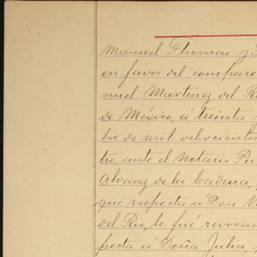 Manuel Thomas y
en favor del compare
nuel Martinez del R
de México, á treinta
bre de mil ochocientos
tro, ante el Notario Pu
Alvarez de la Cadena,
que respecta á Don
del Rio, le fué revoca
pecta á Doña Julia,